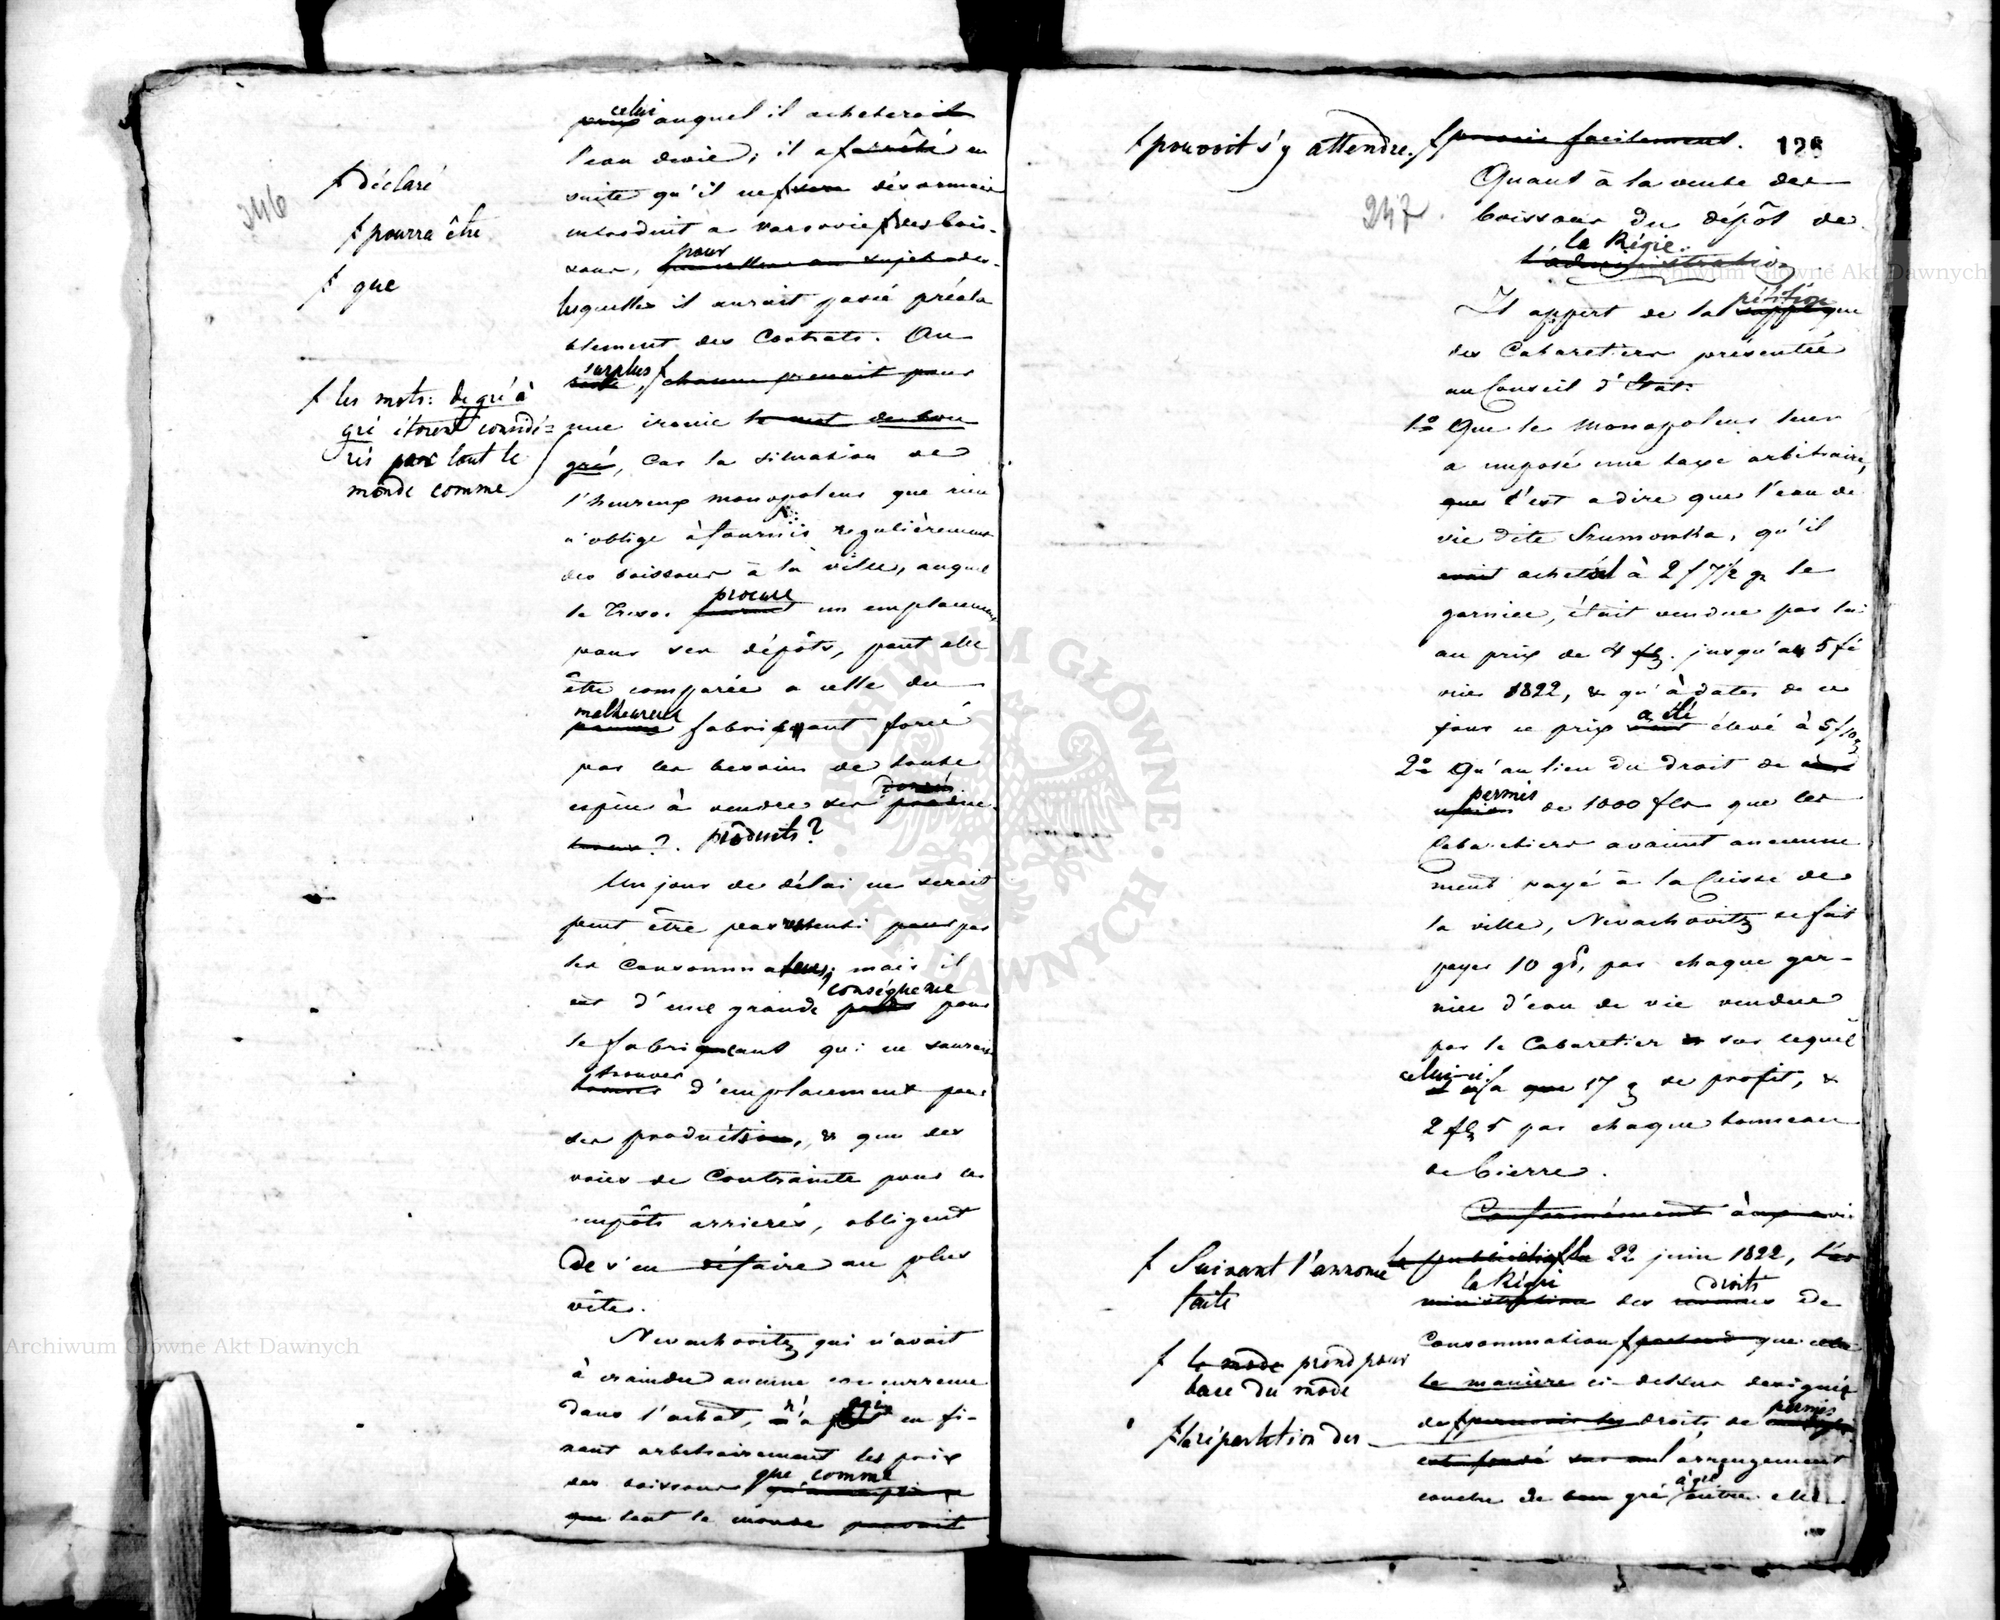 246
celui
prix auquel il acheterait
l'eau devie; il a ƒ arrêté en
ƒ déclaré
suite qu'il ne ƒ sera désormais
ƒ pourra être
introduit a varsovie ƒ des bois-
ƒ que
pour
sons,
lesquelles il aurait passé préala
blement des Contrats. Au
surplus ƒ
reste, ƒ chacun prenait pour
ƒ les mots: de gré à
gré étoient considé=
rés par tout le
monde comme
une ironie le mot de bon
gré, Car la situation de
l'heureux monopoleur que rien
n'oblige à fournir regulièrement
des boissons à la ville, auquel
procure
le Tresor fournit un emplacement
pour ses dépôts, peut elle
être comparée a celle du
malheureux
pauvre fabriquant forcé
par les besoins de toute
espèce à vendre ses
produits?
Un jour de délai ne serait
peut être pas ressenti pour par
les Consommateurs; mais il
conséquence
est d'une grande poids pour
le fabriquant qui ne saurait
trouver
d'emplacement pour
ses production, & que des
voies de Contrainte pour les
impôts arrierés, obligent
de s'en défaire au plus
vite.
Nevachovitz qui n'avait
à craindre aucune concurrence
dans l'achat, n'a agi en fi-
xant arbitrairement les prix
que comme
des boissons
que tout le monde pouvait
ƒ pouvoit s'y attendre. ƒ prévoir facilement.
126
247.
Quant à la vente des
boissons du dépôt de
la Régie.
l'administration
pétition
Il appert de la supplique
des Cabaretiers présentée
au Conseil d'Etat:
1º Que le Monopoleur leur
a imposé une taxe arbitraire,
que c'est a dire que l'eau de
vie dite Szumowka, qu'il
avait acheté à 2 f 7½ g le
garniec, était vendue par lui
au prix de 4 fl. jusqu'au 5 fé
vrier 1822, & qu'à dater de ce
a été
jour ce prix élevé à 5 f 10 g
2º Qu'au lieu du droit de
permis
de 1000 fls que les
Cabaretiers avaient ancienne
ment payé à la Caisse de
la ville, Nevachovitz se fait
payer 10 gs, par chaque gar-
niec d'eau de vie vendue
par le Cabaretier & sur lequel
celui-ci
n'a que 17 g de profit, &
2 fl 5 par chaque tonneau
de bierre.
Conformément à
ƒ Suivant l'annonce
faite
la publication ƒ le 22 juin 1822, l'ad
la Régie
ministration des droits de
Consommation ƒ prétend que
ƒ le mode prend pour
base du mode
la manière ci-dessus designée
ƒ la répartition des
permis
de ƒ percevoir les droits de
est fondé sur un l'arrangement
à gré
conclu de bon gré entre elle